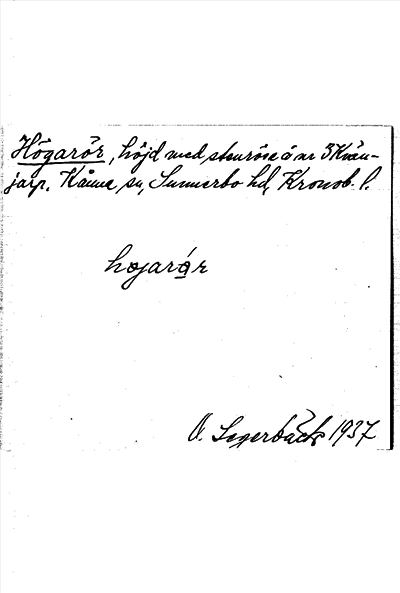 Högarör, höjd med stenröse å nr 3 Kvän-
jarp. Kånna sn, Sunnerbo hd, Kronob. l.
hogarǻr
O. Segerbäck 1937